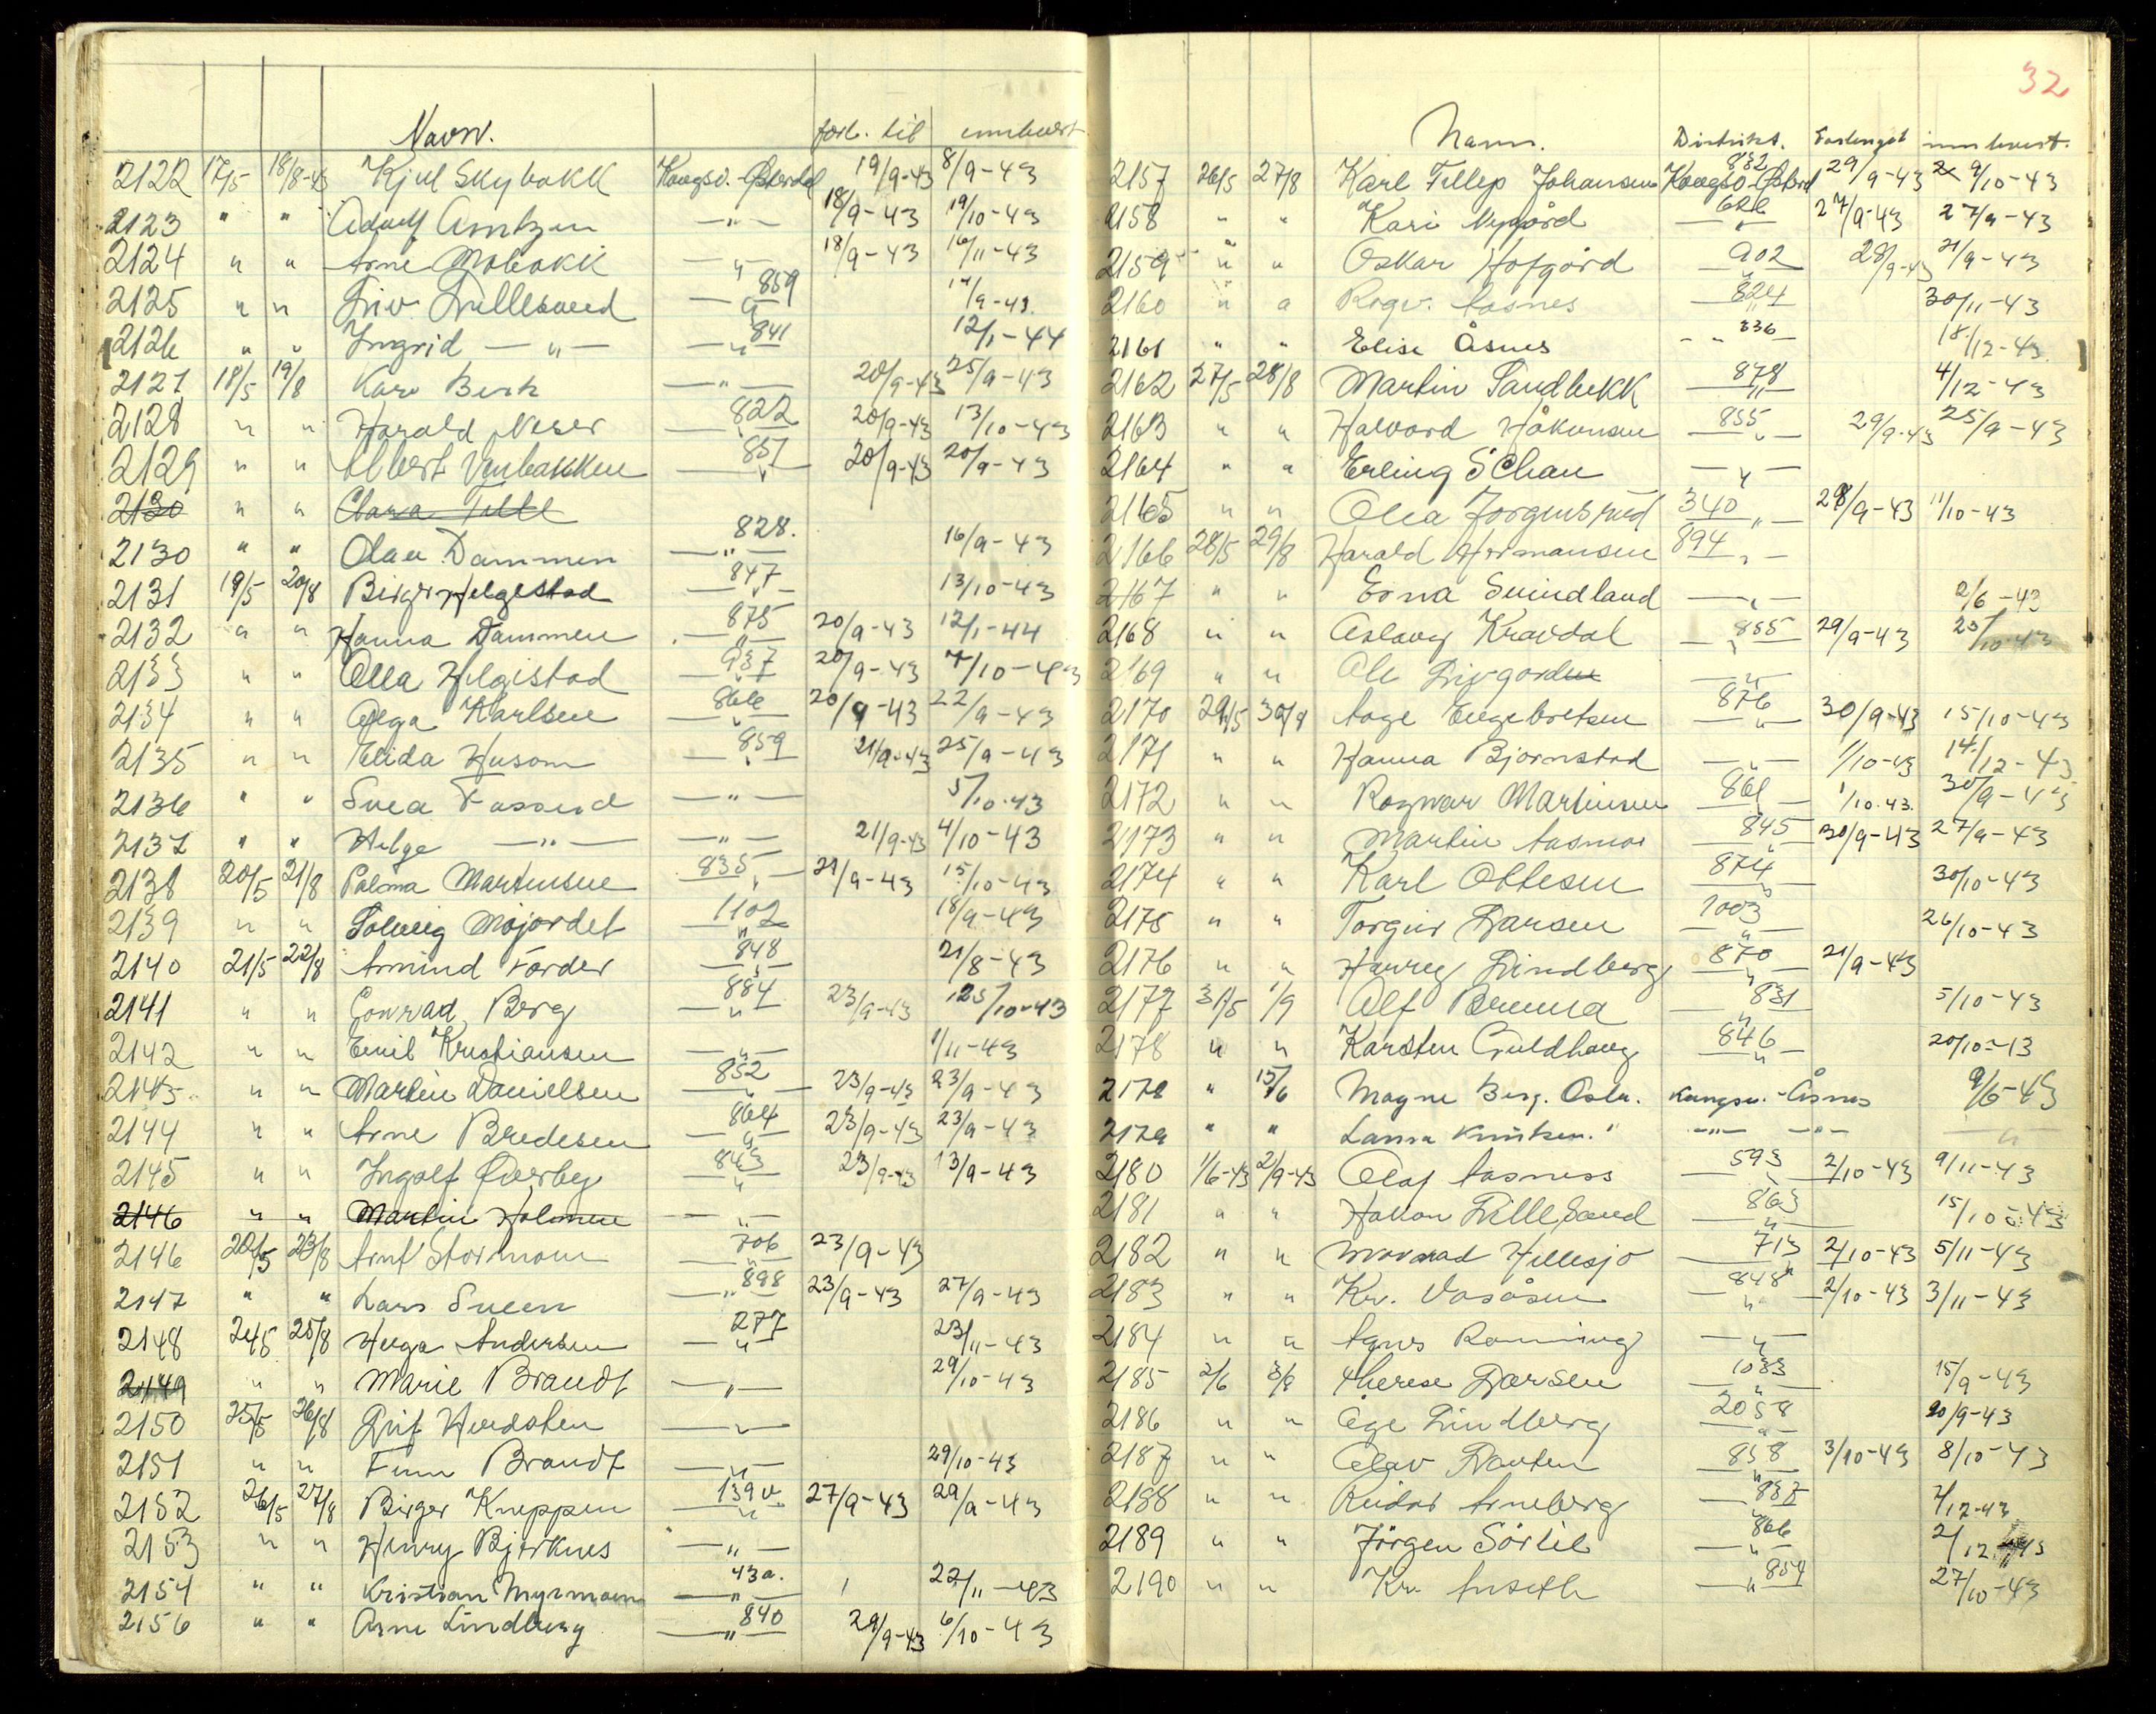 Navn. forl. til innlevert
2122 17/5 18/8-43 Kjell Skybakk Kongsv.-Østerdal 19/9-43 8/9-43
2123 " " Adolf Arntzen —"— 18/9-43 19/10-43
2124 " " Arne Mobakk —"— 18/9-43 16/11-43
2125 " " Liv Lillesæed —"— 859 /9-43.
2126 " " Ingrid —"— —"— 841 12/1-44
2127 18/5 19/8 Kari Berk —"— 20/9-43 25/9-43
2128 " " Harald Neser —"— 822 20/9-43 13/10-43
2129 " " Albert Venbakken —"— 857 20/9-43 20/9-43
2130 " " Clara Tille
2130 " " Olav Dammen —"— 828. 16/9-43
2131 19/5 20/8 Birger Helgestad —"— 847 13/10-43
2132 " " Hanna Dammen —"— 875 20/9-43 12/1-44
2133 " " Olla Helgestad —"— 937 20/9-43 7/10-43
2134 " " Olga Karlsen —"— 866 20/9-43 22/9-43
2135 " " Elida Husom —"— 859 21/9-43 25/9-43
2136 " " Svea Fosserd —"— 5/10-43
2137 " " Helge —"— —"— 21/9-43 4/10-43
2138 20/5 21/8 Palma Martinsen 835 —"— 21/9-43 15/10-43
2139 " " Solveig Mojordet 1102 —"— 18/9-43
2140 21/5 22/8 Amund Førder 848 —"— 21/8-43
2141 " " Conrad Berg 884 —"— 23/9-43 125/10-43
2142 " " Emil Kristiansen —"— 1/11-43
2143 " " Martin Danielsen 852 —"— 23/9-43 23/9-43
2144 " " Arne Bredesen 864 —"— 23/9-43 23/9-43
2145 " " Ingolf Øverby 843 —"— 23/9-43 13/9-43
2146 " " Martin Holmen —"—
2146 22/5 23/8 Arnt Stormoen 706 —"— 23/9-43
2147 " " Lars Sveen —"— 898 23/9-43 27/9-43
2148 24/5 25/8 Helga Andersen 277 —"— 23/11-43
2149 " " Marie Brandt —"— 29/10-43
2150 25/5 26/8 Leif Hvedsten —"—
2151 " " Finn Brandt —"— 29/10-43
2152 26/5 27/8 Birger Kneppen 139v. —"— 27/9-43 29/9-43
2153 " " Henry Bjerknes —"—
2154 " " Kristian Myrmoen 43a. —"— 22/11-43
2156 " " Arne Lindberg —"— 840 29/9-43 6/10-43
32
Navn. Distrikt. Forlenget innlevert.
2157 26/5 27/8 Karl Tellep Johansen Kongsv-Østerd 832 29/9-43 9/10-43
2158 " " Kari Nygård 626 " 27/9-43 27/9-43
2159 " " Oskar Hofgård 902 " 28/9-43 21/9-43
2160 " " Ragv. Aasnes 824 " 30/11-43
2161 " " Elise Åsnes —"— 836 18/12-43.
2162 27/5 28/8 Martin Sandbekk 878 " 4/12-43
2163 " " Halvard Håkonsen 855 —"— 29/9-43 25/9-43
2164 " " Erling Schau —"—
2165 " " Olea Jorgensrud 340 —"— 28/9-43 11/10-43
2166 28/5 29/8 Harald Hermansen 894 —"—
2167 " " Erna Svindland —"— 2/6-43
2168 " " Aslaug Kravdal 855 —"— 29/9-43 25/10-43
2169 " " Ole Livgorden —"—
2170 29/5 30/8 Aage Engebretsen 876 —"— 30/9-43 15/10-43
2171 " " Hanna Bjornstad —"— 1/10-43 14/12-43
2172 " " Ragnvar Martinsen 861 —"— 1/10-43. 30/9-43
2173 " " Martin Aasmos 845 —"— 30/9-43 27/9-43
2174 " " Karl Ottesen 874 —"— 30/10-43
2175 " " Torgeir Larsen 1003 —"— 26/10-43
2176 " " Harrey Lindberg 870 —"— 21/9-43
2177 31/5 1/9 Alf Brenna 831 —"— 5/10-43
2178 " " Karsten Guldhaug 846 —"— 20/10-13
2178 " 15/6 Magne Berg. Oslo. Kongsv.-Åsnes 9/6-43
2179 " " Laura Knutsen. " —"— —"— —"—
2180 1/6-43 2/9-43 Olaf Aasness 593 —"— 2/10-43 9/11-43
2181 " " Håkon Lillesand 863 —"— 15/10-43
2182 " " Hellesjø 713 —"— 2/10-43 5/11-43
2183 " " Kr. Vasåsen 848 —"— 2/10-43 3/11-43
2184 " " Agnes Ronning —"—
2185 2/6 3/9 Therese Larsen 1033 —"— 15/9-43
2186 " " Åge Lindberg 2058 —"— 20/9-43
2187 " " Olav Dauten 858 —"— 3/10-43 8/10-43
2188 " " Reidar Arneberg —"— 837 7/12-43
2189 " " Jörgen Sörlie 866 —"— 2/12-43
2190 " " Kr. Anseth —"— 854 27/10-43